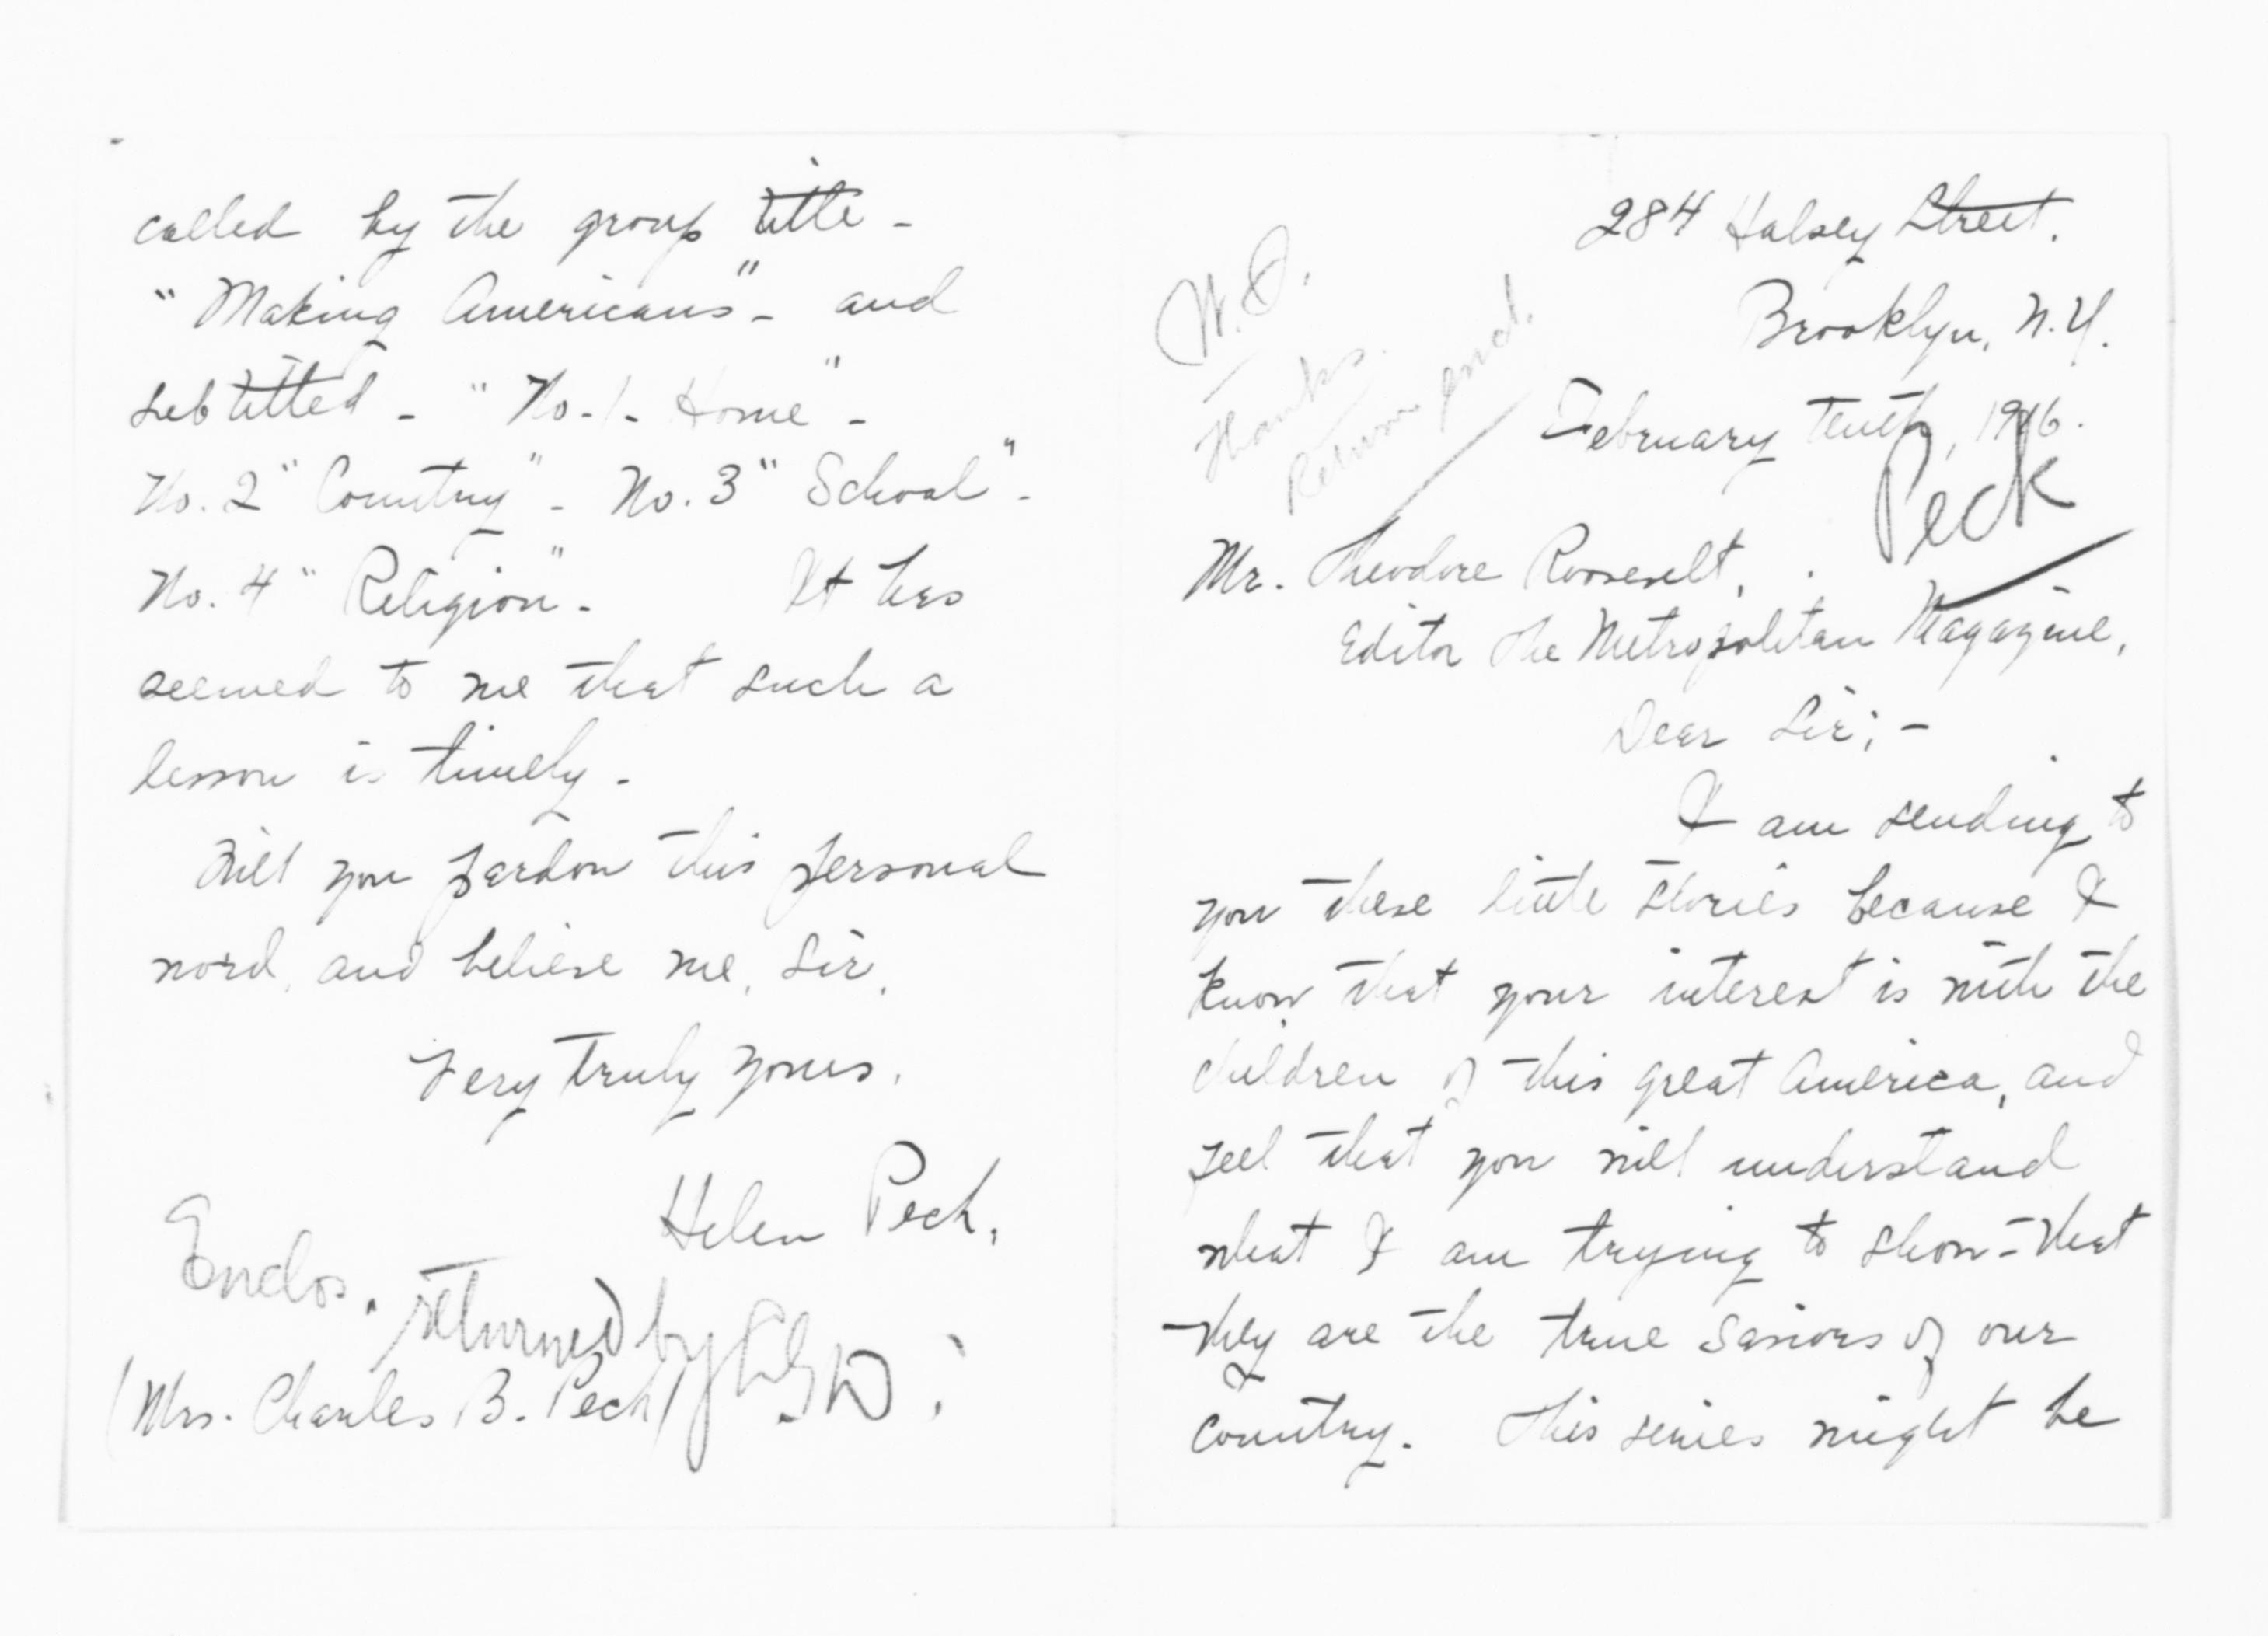 284 Halsey Street.
Brooklyn, N.Y.
February tenth, 1916.
Peck
W.D.
Thanks.
Return encl.
Mr. Theodore Roosevelt,
Editor The Metropolitan Magazine,
Dear Sir; -
I am sending to
you these little stories because I
know that your interest is with the
children of this great America, and
feel that you will understand
what I am trying to show - that
they are the true saviors of our
country. This series might be
called by the group title -
"Making Americans" - and
subtitled - "No. 1 - Home" -
No. 2 "Country" - No. 3 "School" -
No. 4 "Religion" - It has
seemed to me that such a
lesson is timely -
Will you pardon this personal
word, and believe me, Sir,
Very truly yours,
Helen Peck,
Enclos. returned by
(Mrs. Charles B. Peck)